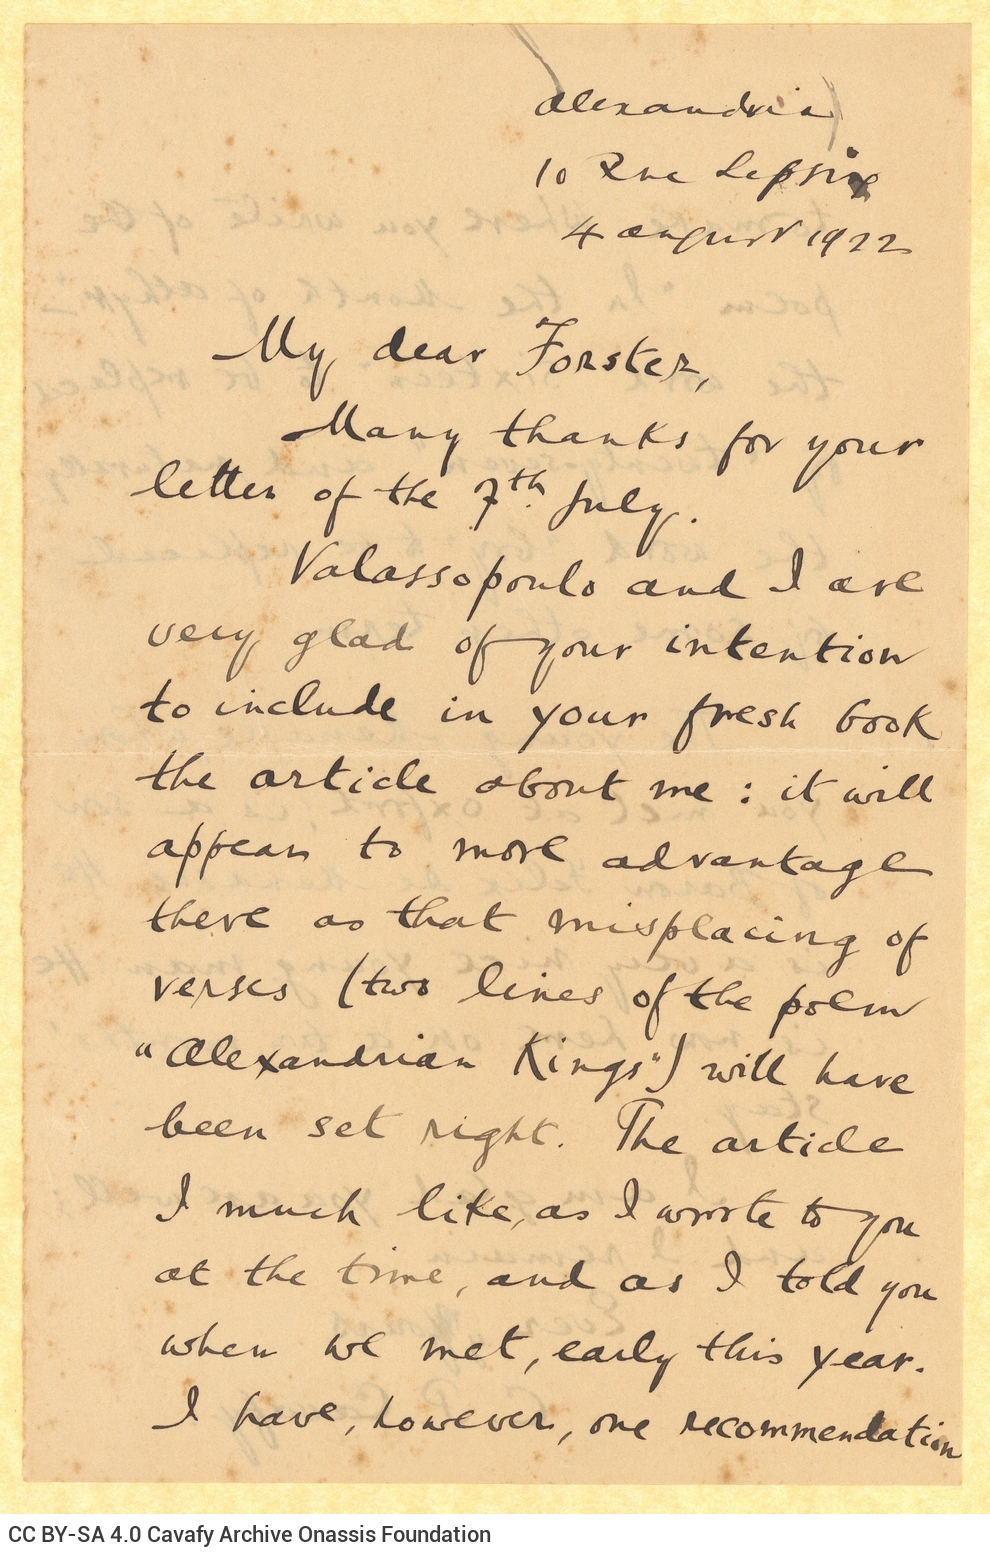 Alexandria
10 Rue Lepsius
4 August 1922
My dear Forster,
Many thanks for your
letter of the 7th July.
Valassopoulo and I are
very glad of your intention
to include in your fresh book
the article about me: it will
appear to more advantage
there as that misplacing of
verses (two lines of the poem
"Alexandrian Kings") will have
been set right. The article
I much like, as I wrote to you
at the time, and as I told you
when we met, early this year.
I have, however, one recommendation
CC BY-SA 4.0 Cavafy Archive Onassis Foundation